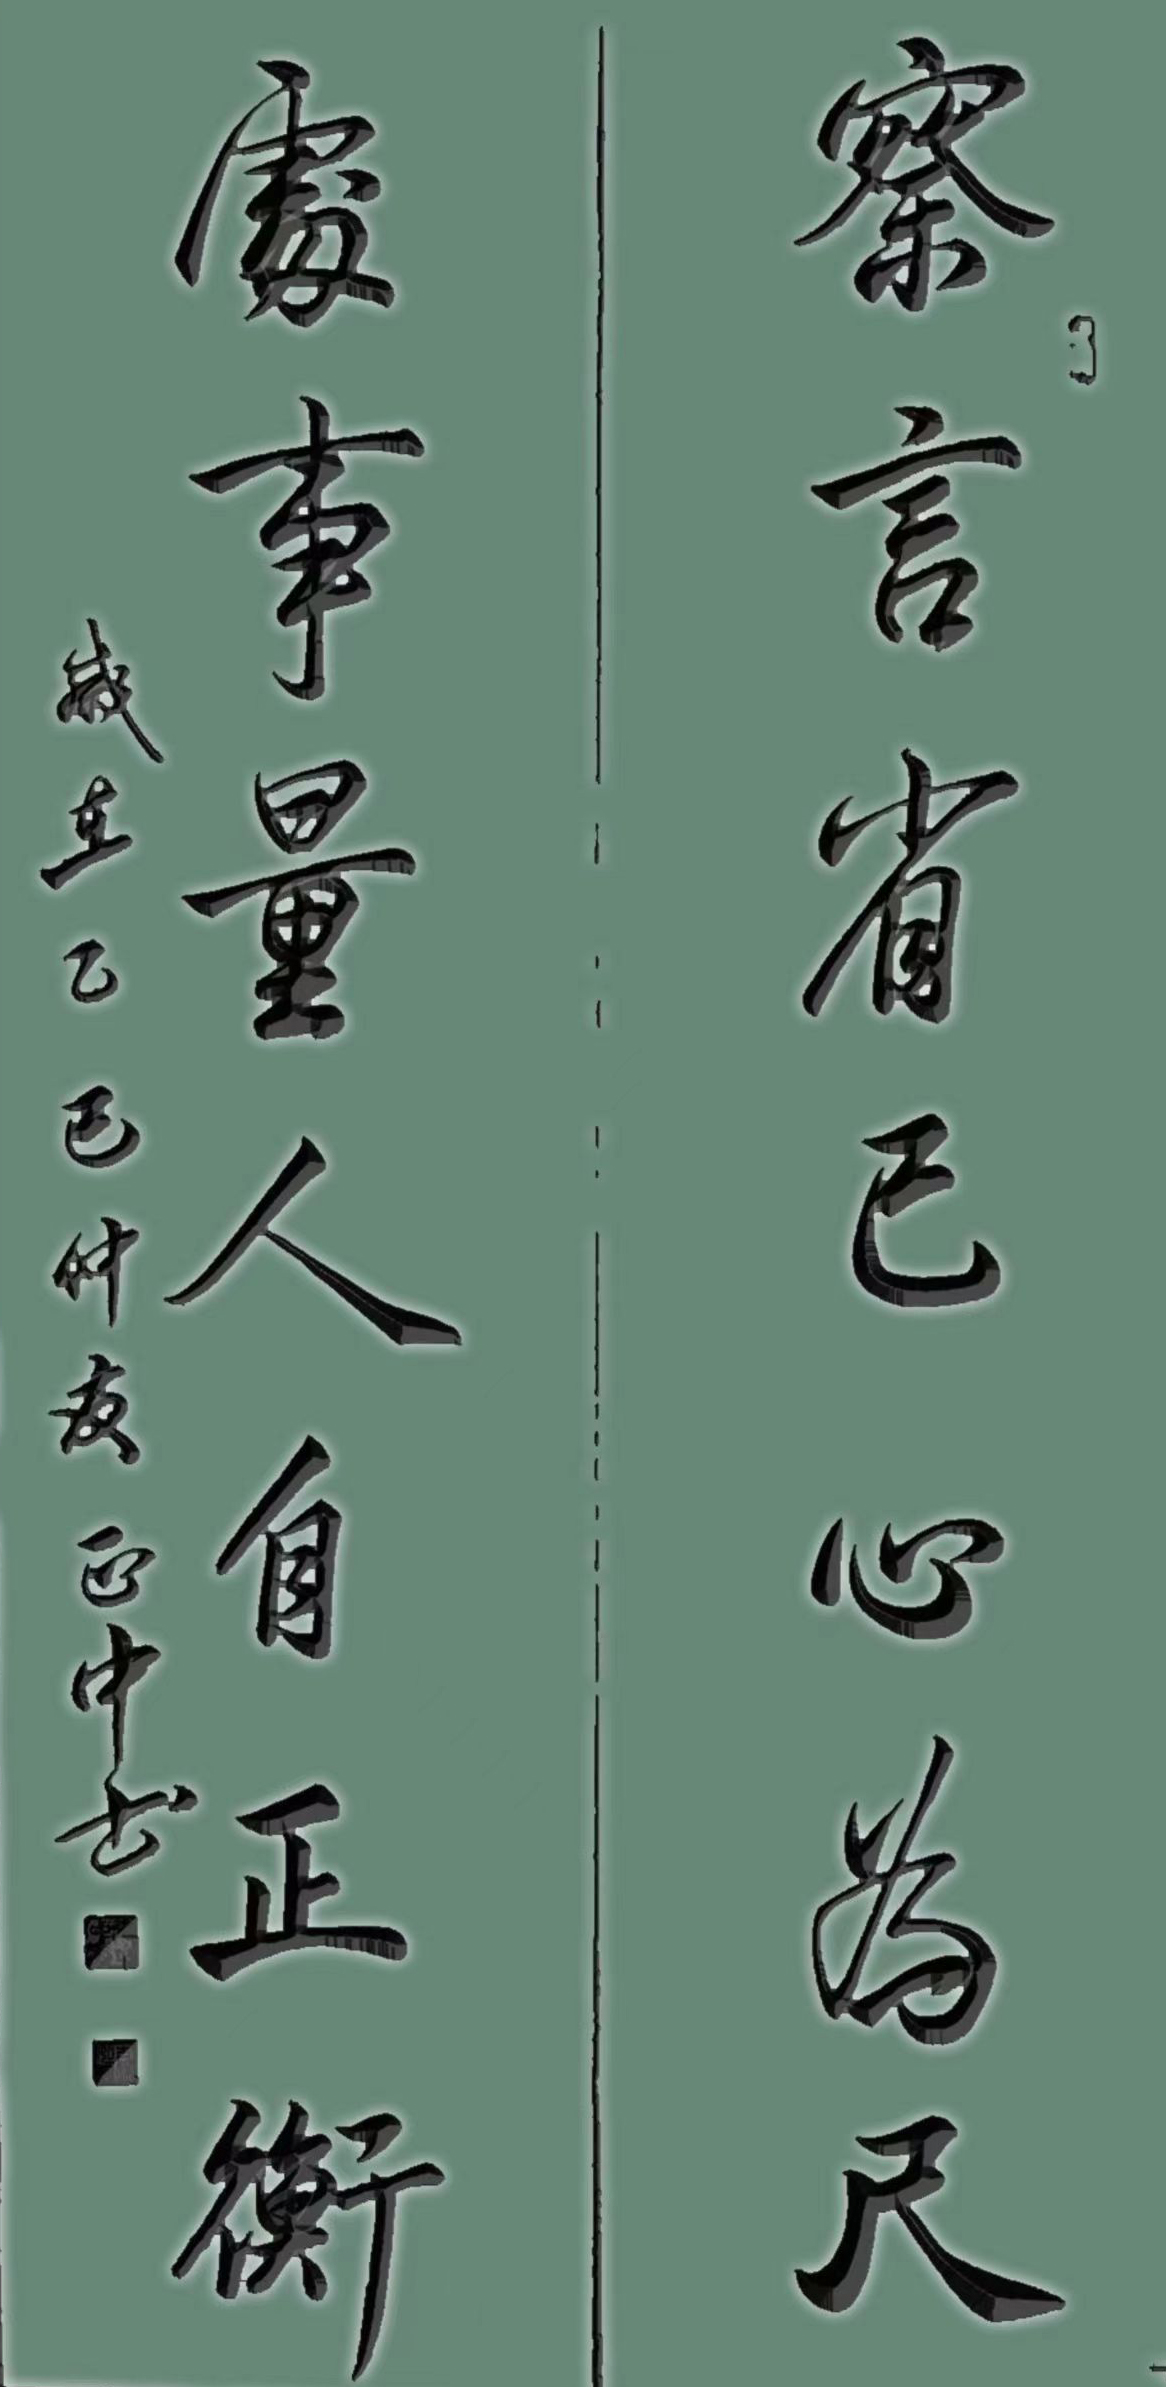 察言省己心為尺
處事量人自正衡
歲在乙巳仲夏正中书